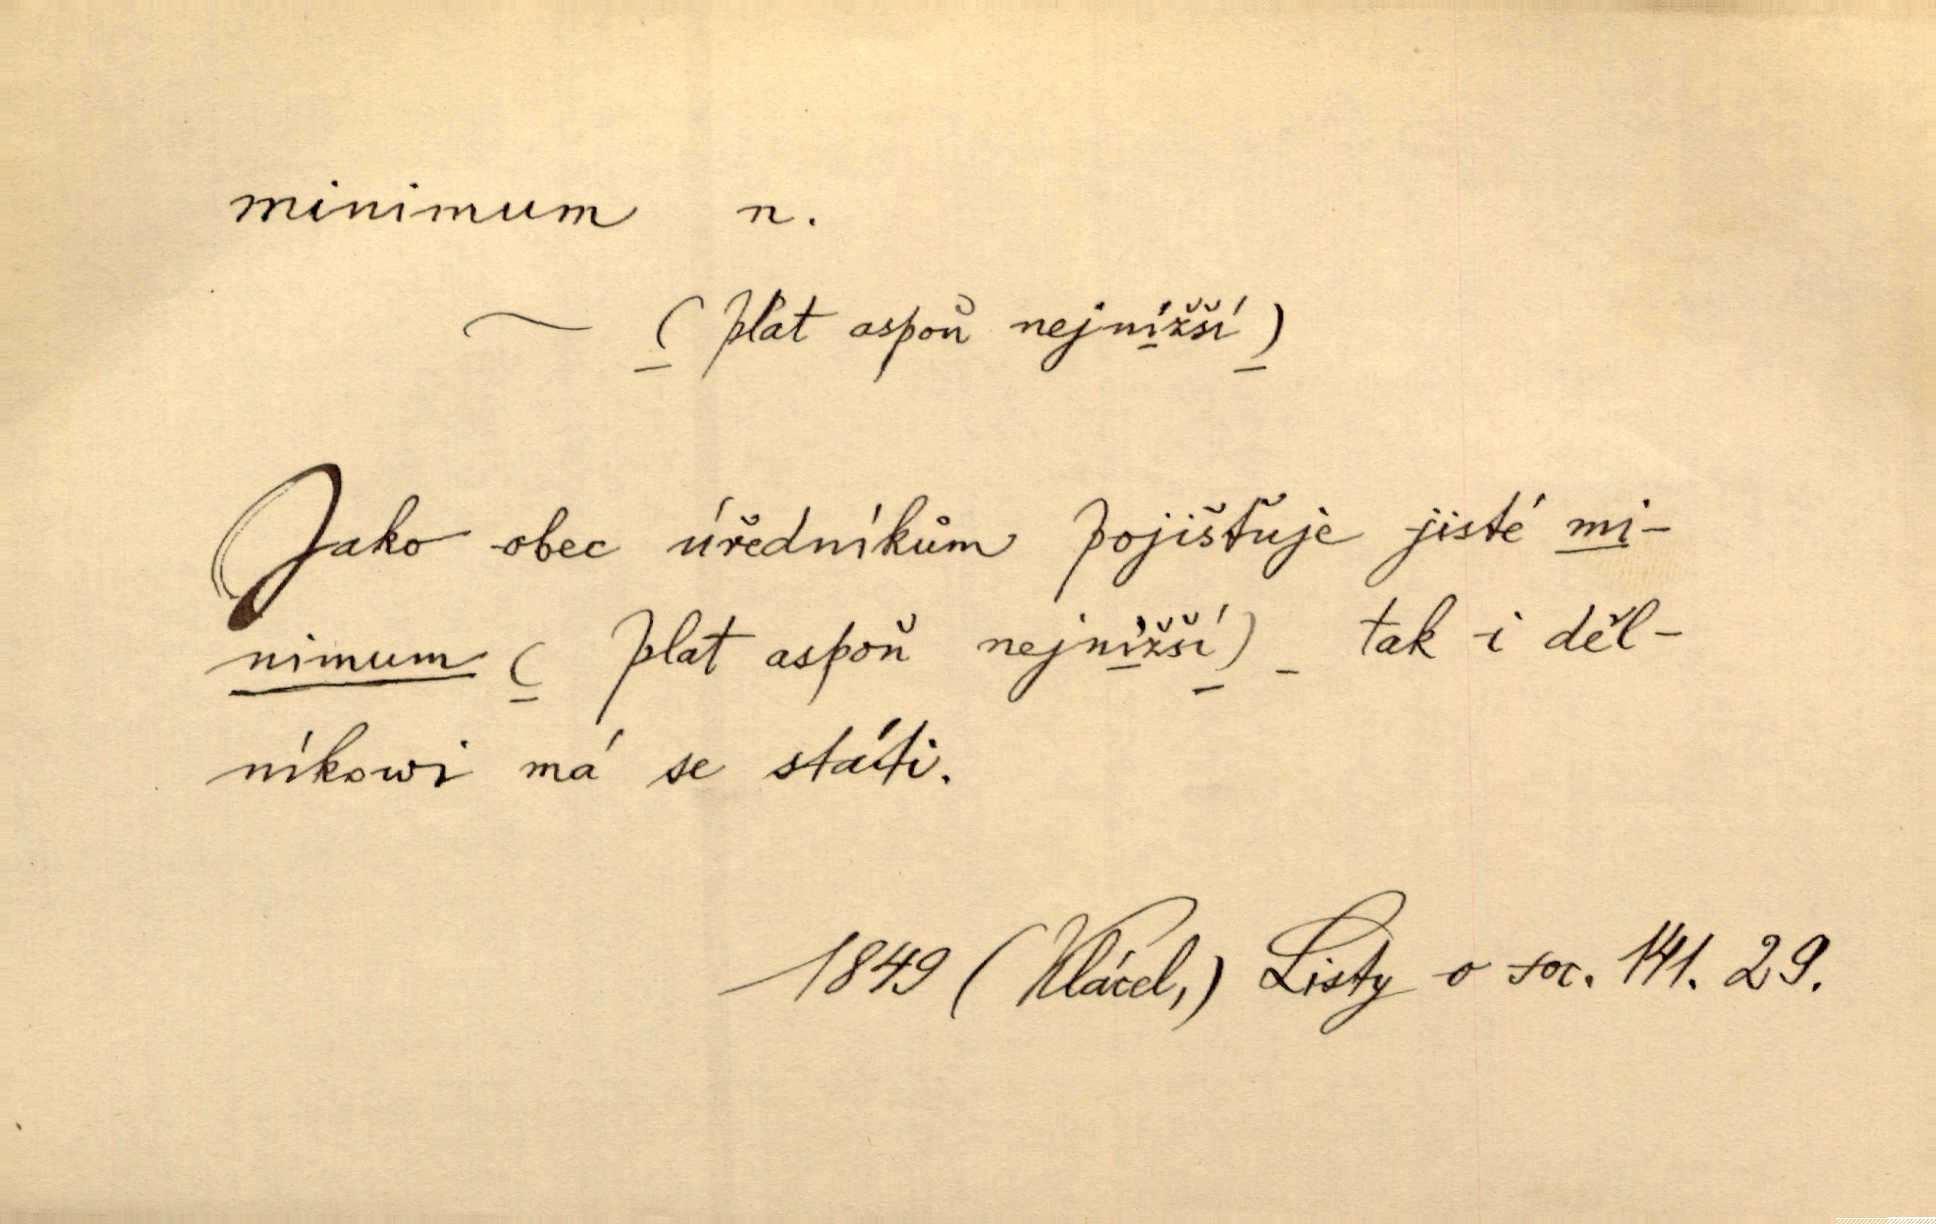 minimum n.
~ (plat aspoň nejnížší)
Jako obec úředníkům pojišťuje jisté mi-
nimum (plat aspoň nejnížší) tak i děl-
níkowi má se státi.
1849 (Klácel,) Listy o soc. 141. 29.